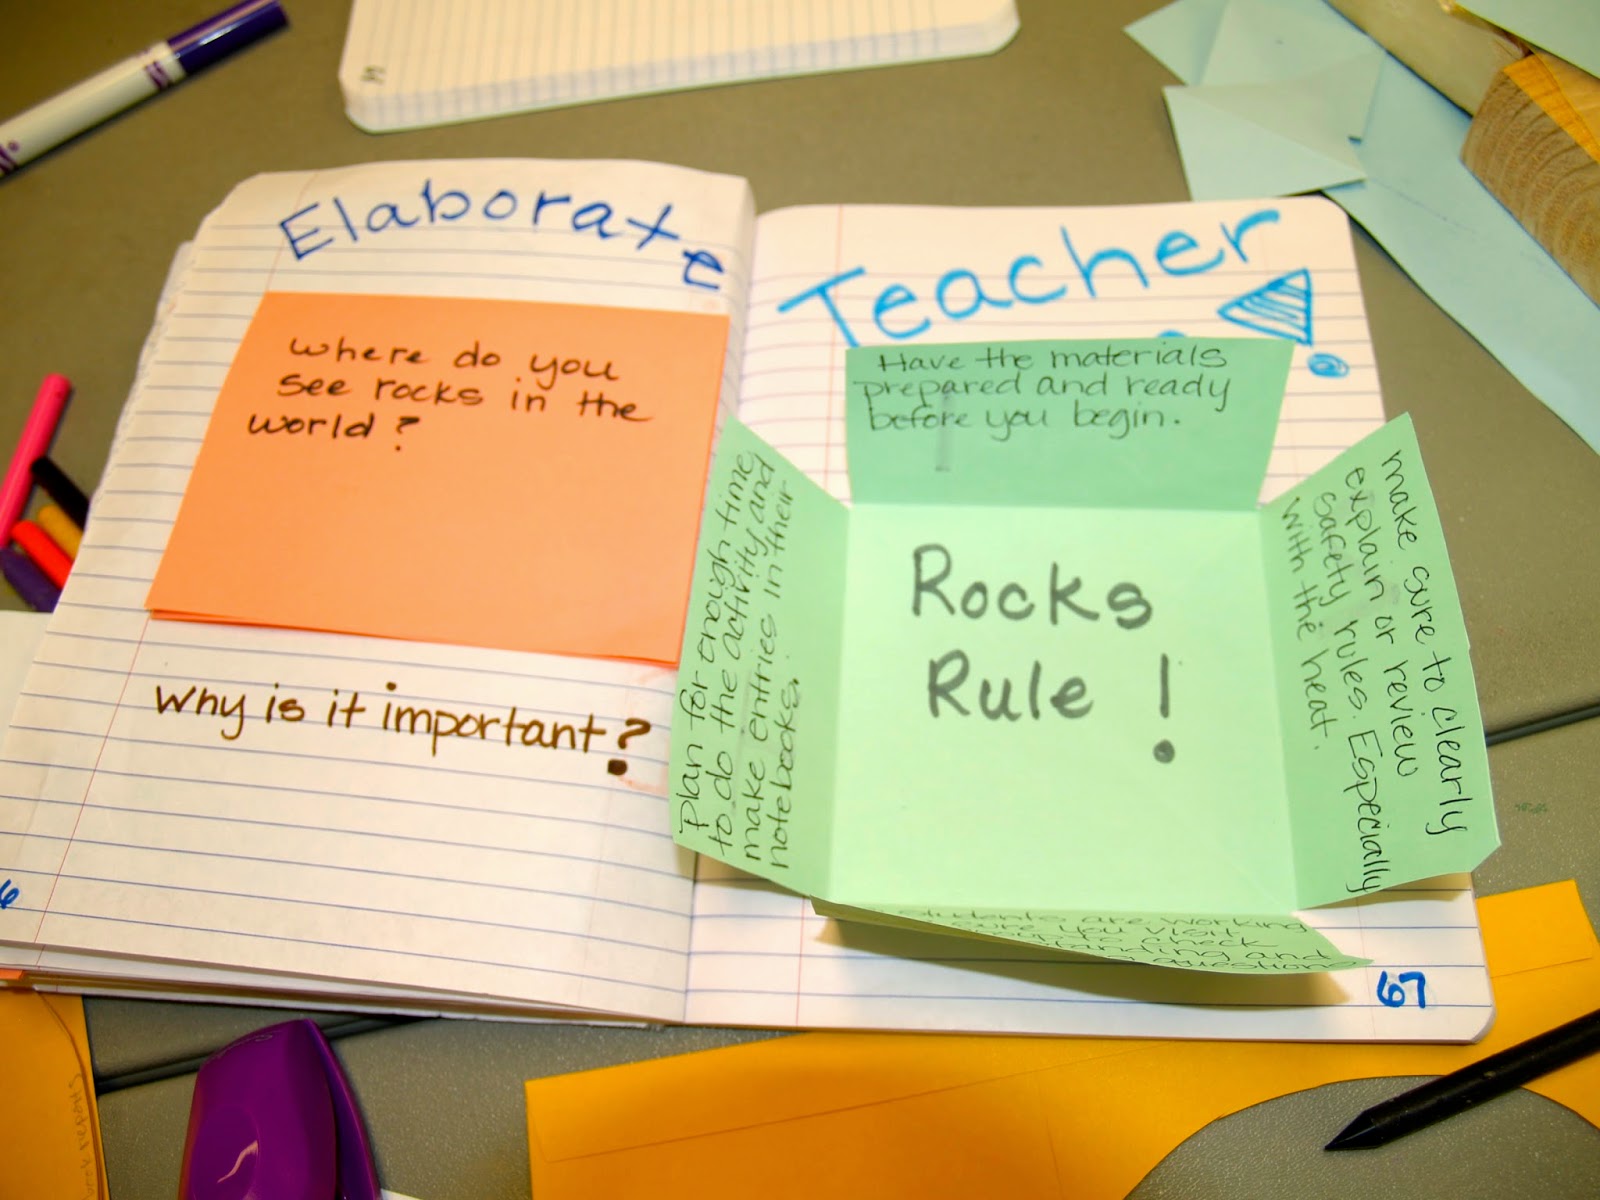 Elaborate
Where do you
see rocks in the
world?
Why is it important?
Teacher
!
Have the materials
prepared and ready
before you begin.
Plan for enough time
to do the activity and
make entries in their
notebooks.
Rocks
Rule!
make sure to clearly
explain or review
safety rules. Especially
with the heat.
students are working
sure you visit
to check
and
questions
6
67